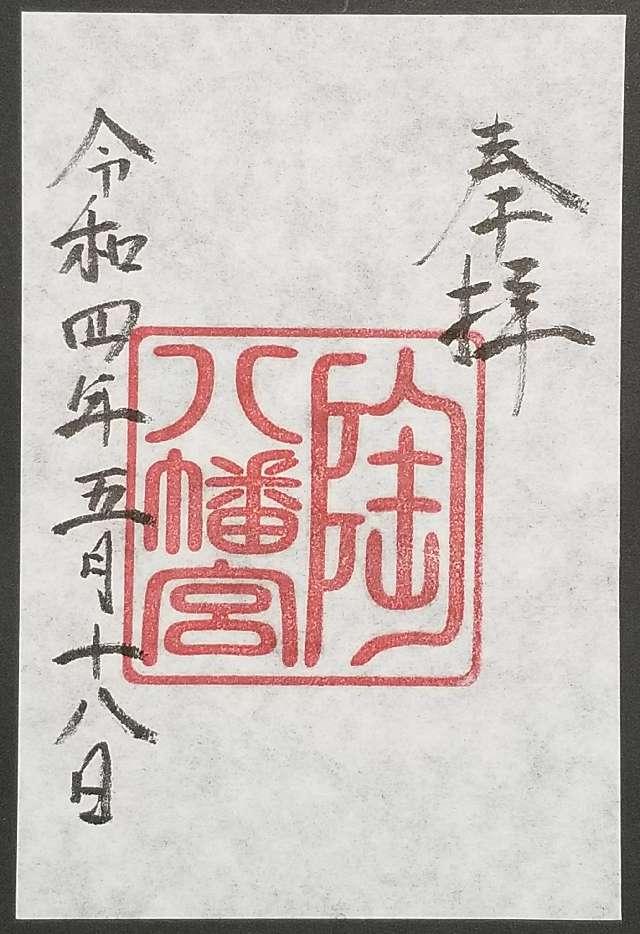 奉拝
陶
八幡宮
令和四年五月十八日